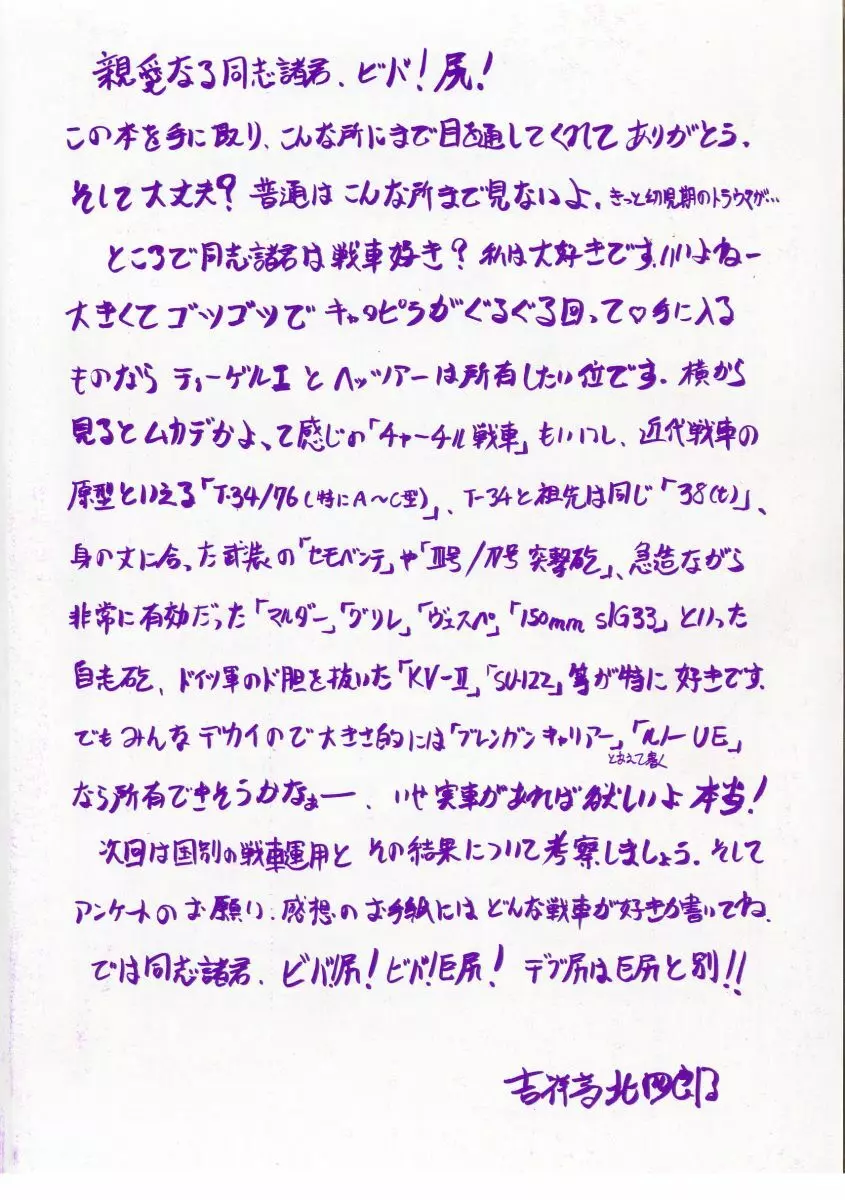 親愛なる同志諸君、ビバ!尻!
この本を手に取り、こんな所にまで目を通してくれてありがとう。
そして大丈夫?普通はこんな所まで見ないよ。きっと幼児期のトラウマが…
ところで同志諸君は戦車好き?私は大好きです。いいよねー
大きくてゴツゴツでキャタピラがぐるぐる回って♡手に入る
ものならティーゲルIとヘッツァーは所有したい位です。横から
見るとムカデかよ、って感じの「チャーチル戦車」もいいし、近代戦車の
原型といえる「T-34/76(特にA~C型)」、T-34と祖先は同じ「38(t)」、
身の丈に合った武装の「セモベンテ」や「III号/IV号突撃砲」、急造ながら
非常に有効だった「マルダー」「グリレ」「ヴェスペ」「150mm sIG33」といった
自走砲、ドイツ軍のド胆を抜いた「KV-II」「SU-122」等が特に好きです。
でもみんなデカイので大きさ的には「ブレンガンキャリアー」「ルノーUE」
とあえて書く
なら所有できそうかなぁー、いせ実車があれば欲しいよ本当!
次回は国別の戦車運用とその結果について考察しましょう。そして
アンケートのお願い、感想のお手紙にはどんな戦車が好きか書いてね。
では同志諸君、ビバ!尻!ビバ!巨尻!デブ尻は巨尻と別!!
吉祥寺北四郎